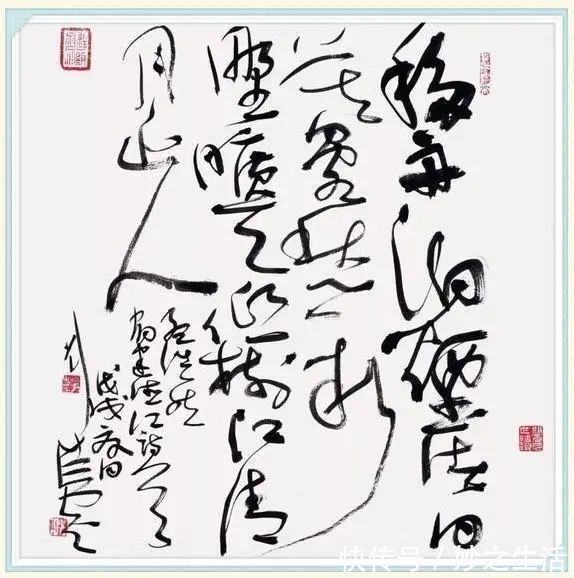 移舟泊煙渚日
暮客愁新
野曠天低樹江清
月近人
孟浩然
宿建德江詩
戊戌
快传号 / 妙之生活